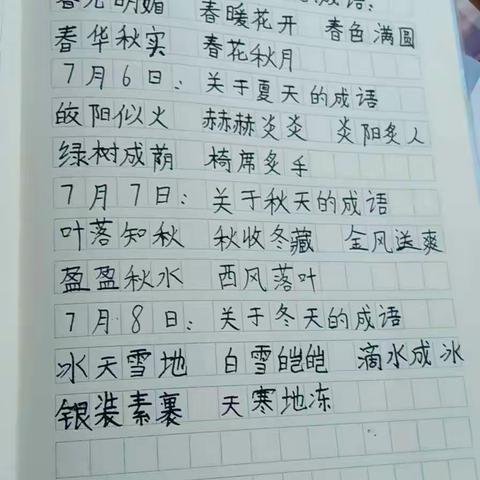 春光明媚 春暖花开 春色满圆
春华秋实 春花秋月
7月6日: 关于夏天的成语
皎阳似火 赫赫炎炎 炎阳炙人
绿树成荫 椅席炙手
7月7日: 关于秋天的成语
叶落知秋 秋收冬藏 金风送爽
盈盈秋水 西风落叶
7月8日: 关于冬天的成语
冰天雪地 白雪皑皑 滴水成冰
银装素裹 天寒地冻